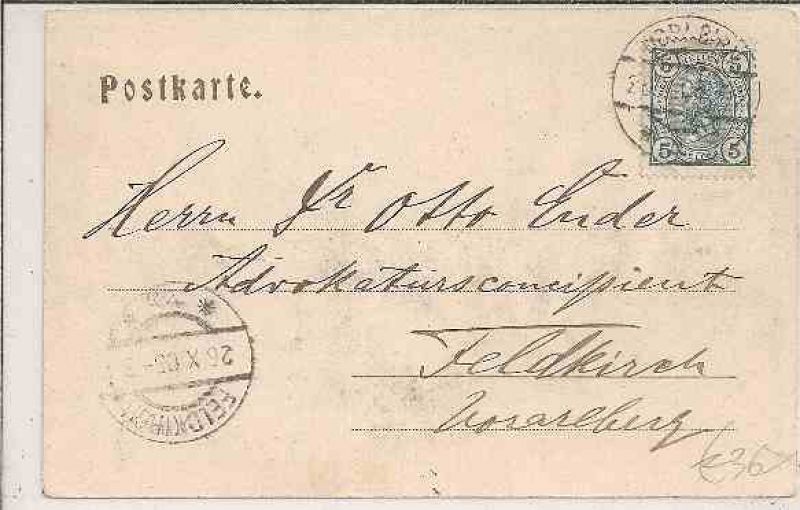 Postkarte.
5 5
5 5
Herrn Dr Otto Ender
Advokaturconcipient
Feldkirch
Vorarlberg
26 X 05
FELDKIRCH
£36